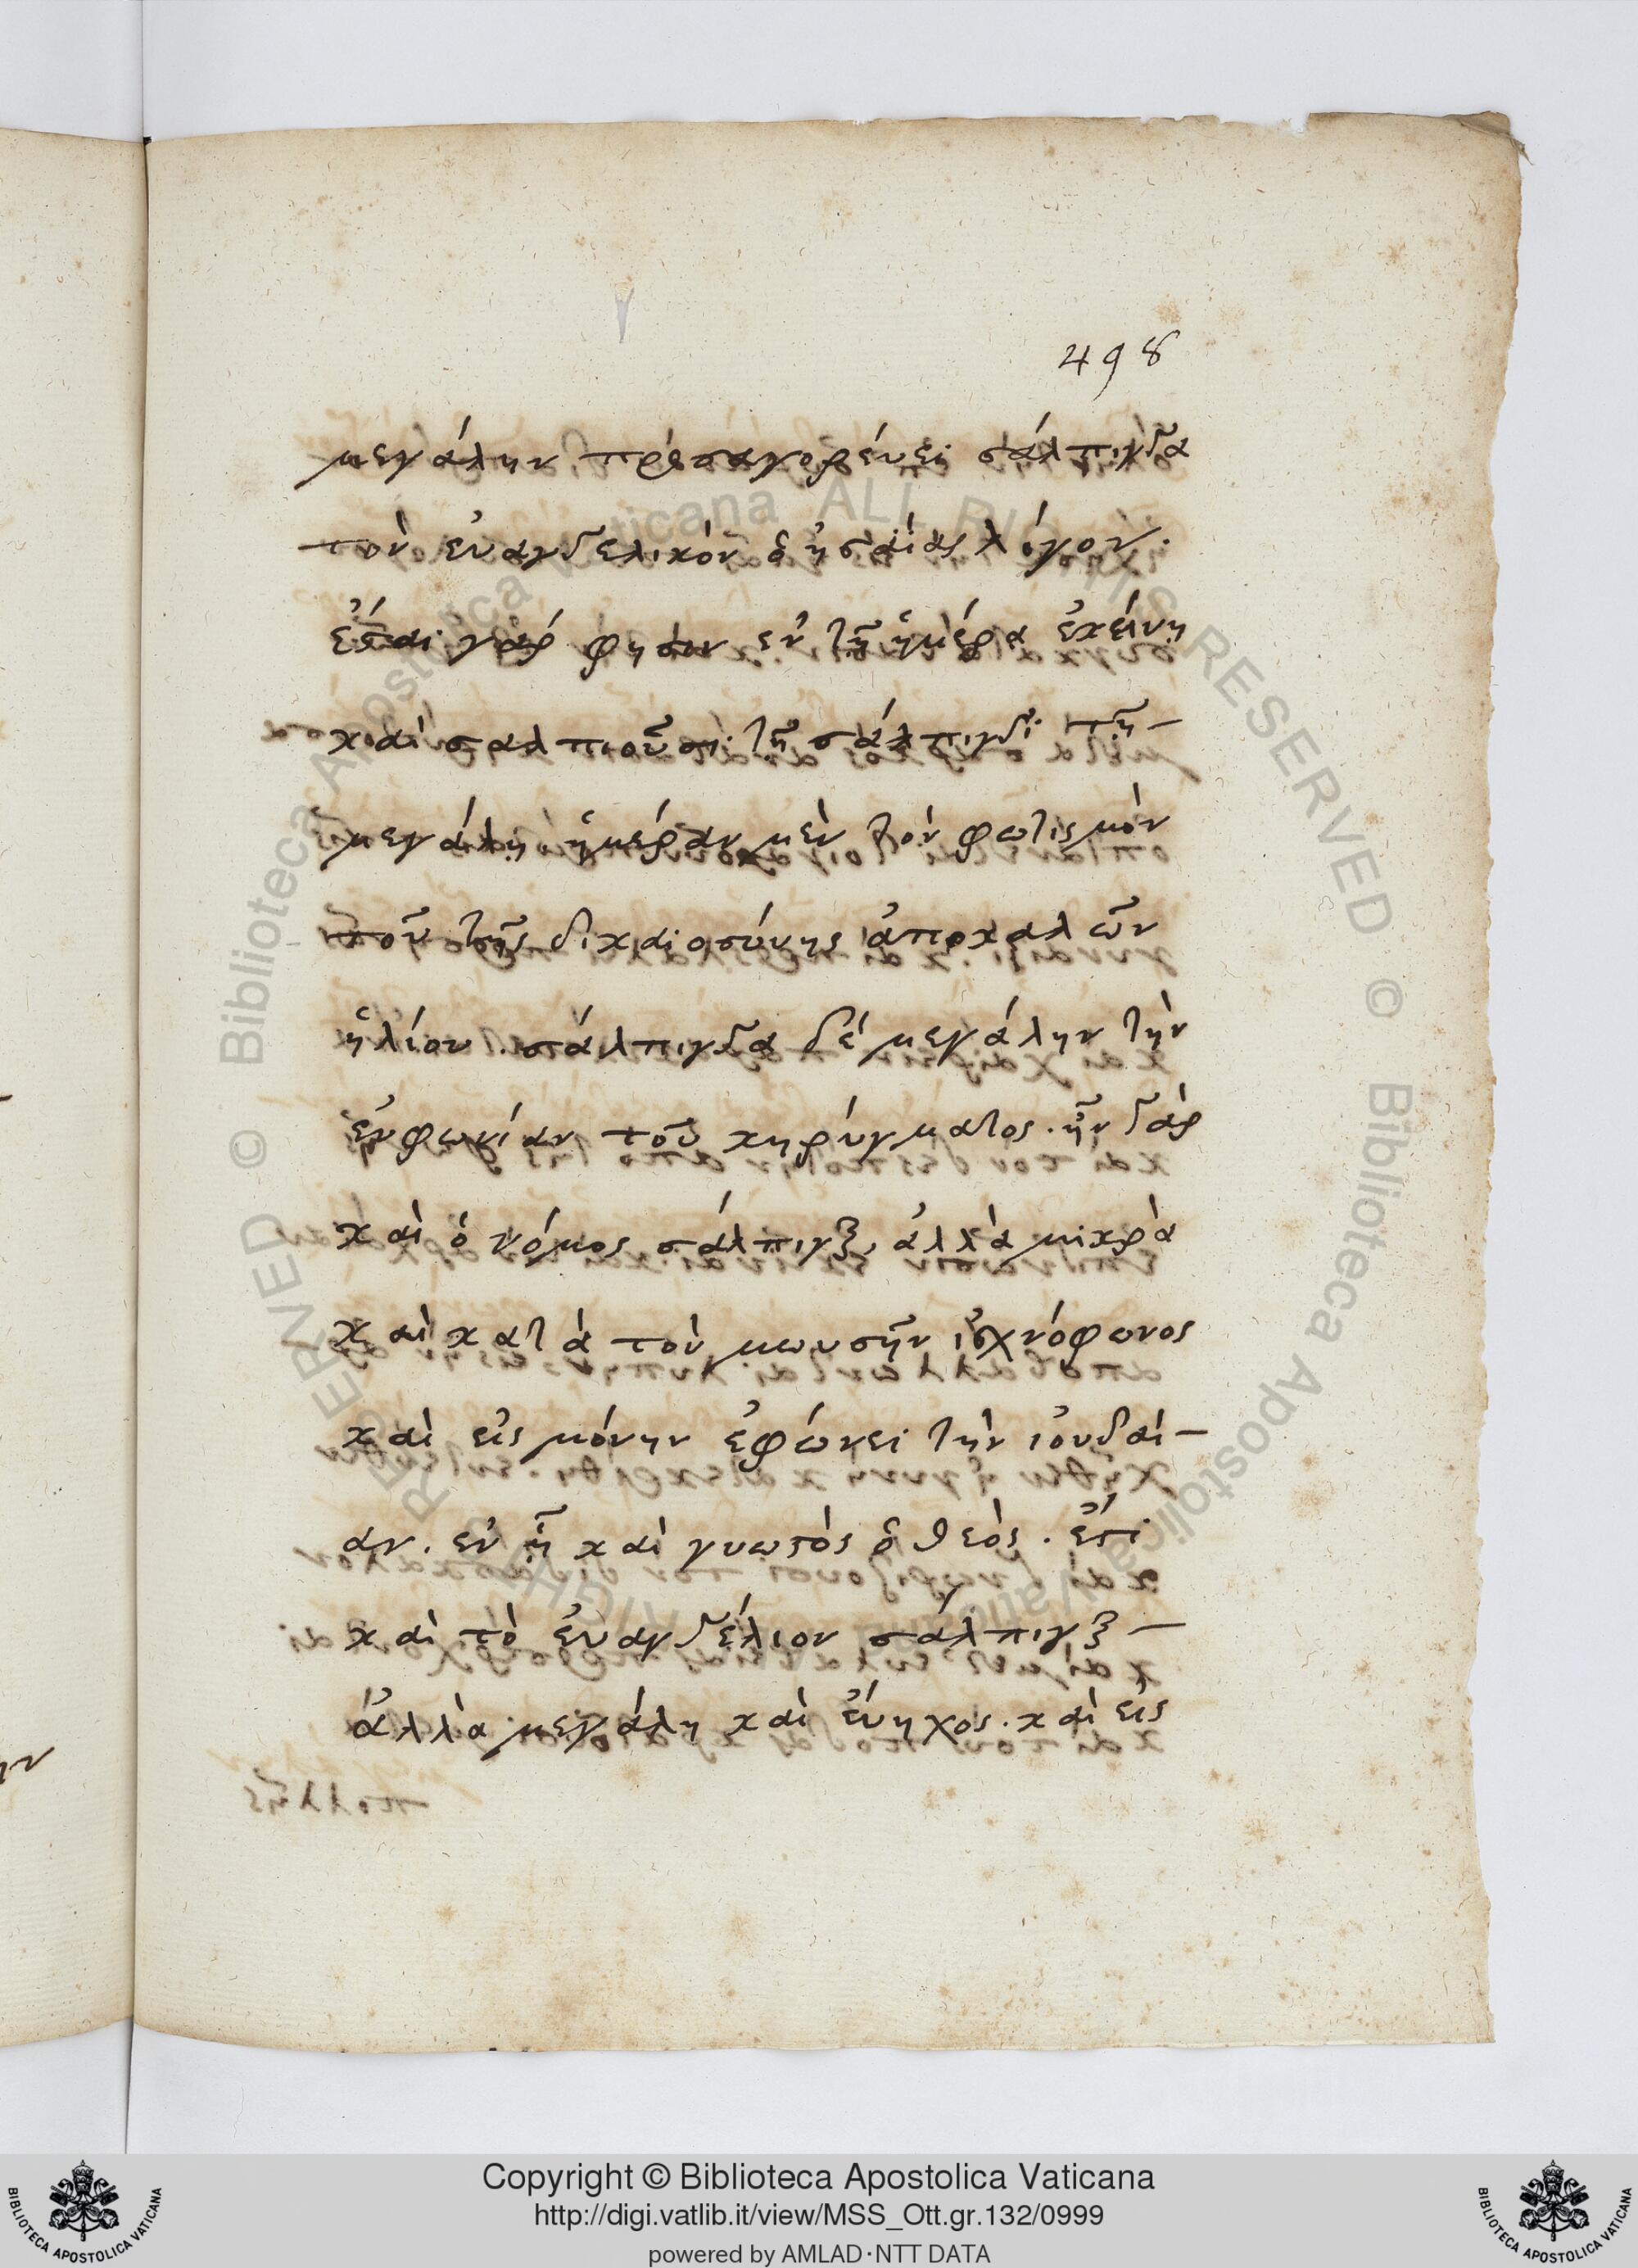 498
μεγάλην προσαγορεύει σάλπιγγα
τὸν εὐαγγελικὸν ὁ ἠσαΐας λόγον.
ἔσται γάρ φησιν ἐν τῇ ἡμέρα ἐκείνη
καὶ σαλπιοῦσι τῇ σάλπιγγι τῇ
μεγάλῃ ἡμέραν μὲν τὸν φωτισμὸν
τοῦ τῆς δικαιοσύνης ἀποκαλῶν
ἡλίου. σάλπιγγα δὲ μεγάλην τὴν
εὐφωνίαν τοῦ κηρύγματος. ἦν γὰρ
καὶ ὁ νόμος σάλπιγξ, ἀλλὰ μικρὰ
καὶ κατὰ τὸν μωυσῆν ἰσχνόφωνος
καὶ εἰς μόνην ἐφώνει τὴν ἰουδαί-
αν. ἐν ᾗ καὶ γνωστὸς ὁ θεὸς. ἔτι
καὶ τὸ εὐαγγέλιον σάλπιγξ
ἀλλὰ μεγάλη καὶ εὔηχος. καὶ εἰς
Copyright © Biblioteca Apostolica Vaticana
http://digi.vatlib.it/view/MSS_Ott.gr.132/0999
powered by AMLAD·NTT DATA
BIBLIOTECA APOSTOLICA VATICANA
BIBLIOTECA APOSTOLICA VATICANA